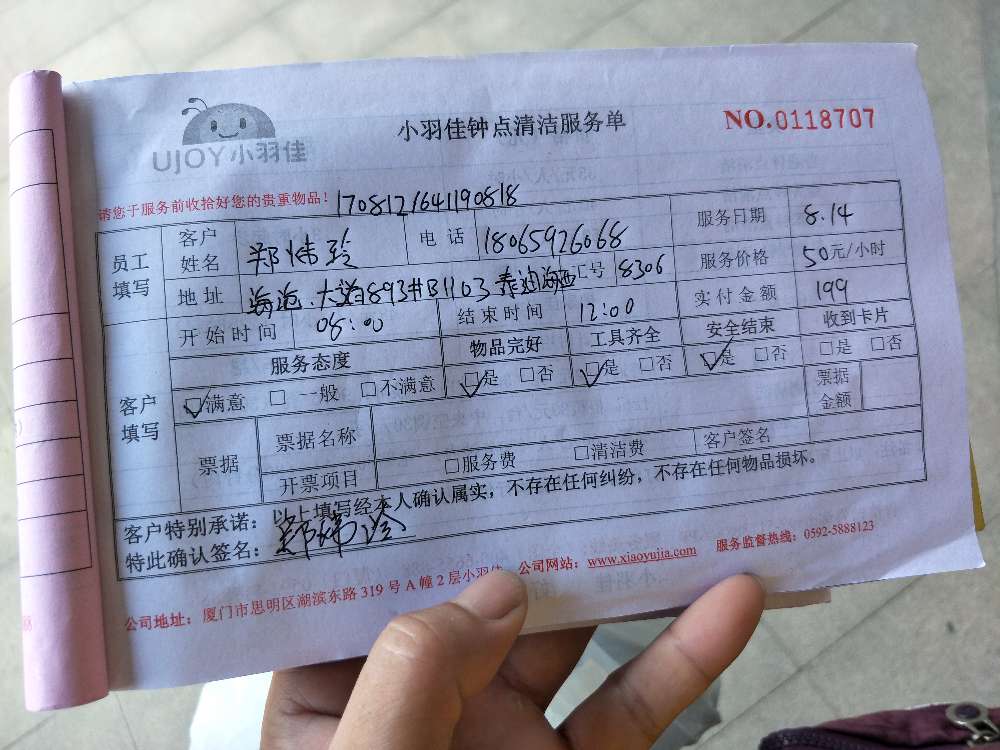 UJOY小羽佳
小羽佳钟点清洁服务单
NO.0118707
请您于服务前收拾好您的贵重物品! 1708121641190818
员工填写 客户姓名 郑炜玲 电话 18065926068 服务日期 8.14
地址 海沧大道893#B1103泰地海西 工号 8306 服务价格 50元/小时
客户填写 开始时间 08:00 结束时间 12:00 实付金额 199
服务态度 物品完好 工具齐全 安全结束 收到卡片
☑满意 □一般 □不满意 ☑是 □否 ☑是 □否 ☑是 □否 □是 □否
票据 票据名称 票据金额
开票项目 □服务费 □清洁费 客户签名
客户特别承诺:以上填写经本人确认属实,不存在任何纠纷,不存在任何物品损坏。
特此确认签名:郑炜玲
公司地址:厦门市思明区湖滨东路319号A幢2层小羽佳 公司网站:www.xiaoyujia.com 服务监督热线:0592-5888123